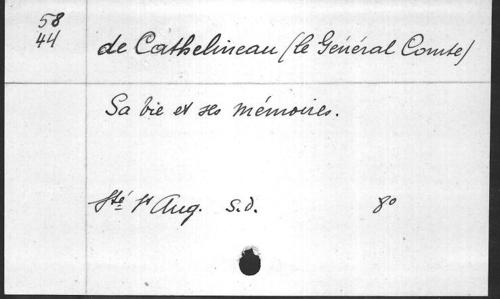 58
44
de Cathelineau (le Général Comte)
Sa vie et ses mémoires.
Sté St Aug. s.d. 8º